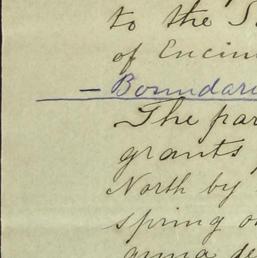 to the S
of Encin
– Boundari
The par
grants
North by
spring o